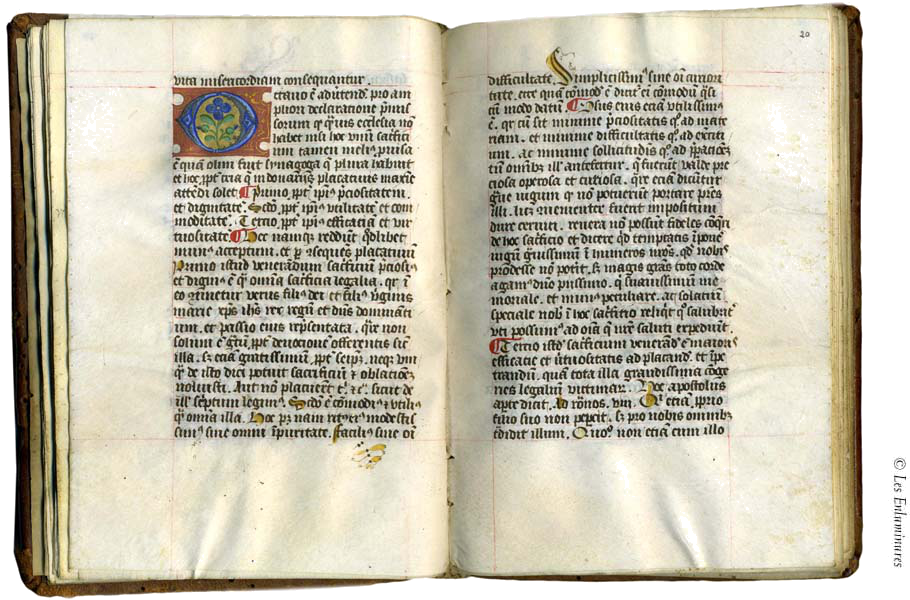 vita misericordiam consequantur.
Octavo ē advertend. pro am
pliori declaratione p̄mis
sorum qꝫ quis ecclesia nō
habet nisi hoc vnū sacrifici
um tamen melius
ē quā olim fuit synagoga que plura habuit
et hoc ꝓpt tria que in donarijs placatiuis maxīe
attēdi solet Primo ꝓpt ipius p̄ciositatem
et dignitatē. Scdō ꝓpt ipius vtilitatē et com
moditatē. Tercio ꝓpt ipius efficaciā et vir
tuositatē Hec namqꝫ reddūt qdlibet
munus acceptum. et ꝑ ꝯseques placatiuū
Primo istud venerandum sacrificiū p̄ciosius
et dignius ē omnia sacrificia legalia. qr ī
eo ꝯtinetur verus filius dei et filius vginis
marie xp̄s ihs rex regū et dn̄s dominanti
um. et passio eius rep̄sentata. que non
solum ē gtū ꝓpt deuocionē offerentis sicut
illa. sꝫ etiā gratissimum ꝓpt seipm. neqꝫ vnqꝫ
de isto dici potuit sacrificiū et oblacionē
noluisti. Aut non placuerūt tibi etc. sicut de
illis septum legimus. Scdo ē comodius et vtilius
omnia illa. Hoc pꝫ nam ritus modestis
simus sine omni īpuritate. facilis sine oī
20
difficultate. Simplicissimus sine oī curiosi
tate. ecce quā comod ē dicit ei comodum qsi
cum modo datū Rursus eius etiā vtilissimus
ē. qr cū sit minime p̄ciositatis qo ad mate
riam. et minime difficultatis qo ad exerciti
um. ac minime sollicitudis qo ad
tn̄ omnibꝫ illis antefertur. que fuerūt valde pre
ciosa operosa et curiosa. que etiā dicūtur
graue iugum qꝫ nō potuerūt portare pres
illi. licꝫ fuerit impositum
dure ceruici. reuera nō possūt fideles cōqri
de hoc sacrificio et dicere qd temptatis īpoē
iugū grauissimū ī humeros nros. qd nobis
prodesse nō potit. sꝫ magis gras toto corde
agamus dn̄o piissimo. que suauissimū me
moriale. et munus peculiare. ac solaciū
speciale nobis ī hoc sacrificio reliqt. quo salubrit
vti possumus ad oīa que nre saluti expediūt.
Tercio istud sacrificium venerandū ē maioris
efficacie et virtuositatis ad placand. et īpe
trandum. quā tota illa grandissima cōge
ries legaliū victimarū. Hoc apostolus
apte dicit. Ad romos. viii. Qui etiam ꝓprio
filio suo non pepercit. sꝫ pro nobis omnibꝫ
tradidit illum. Quomodo non etiam cum illo
© Les Enluminures